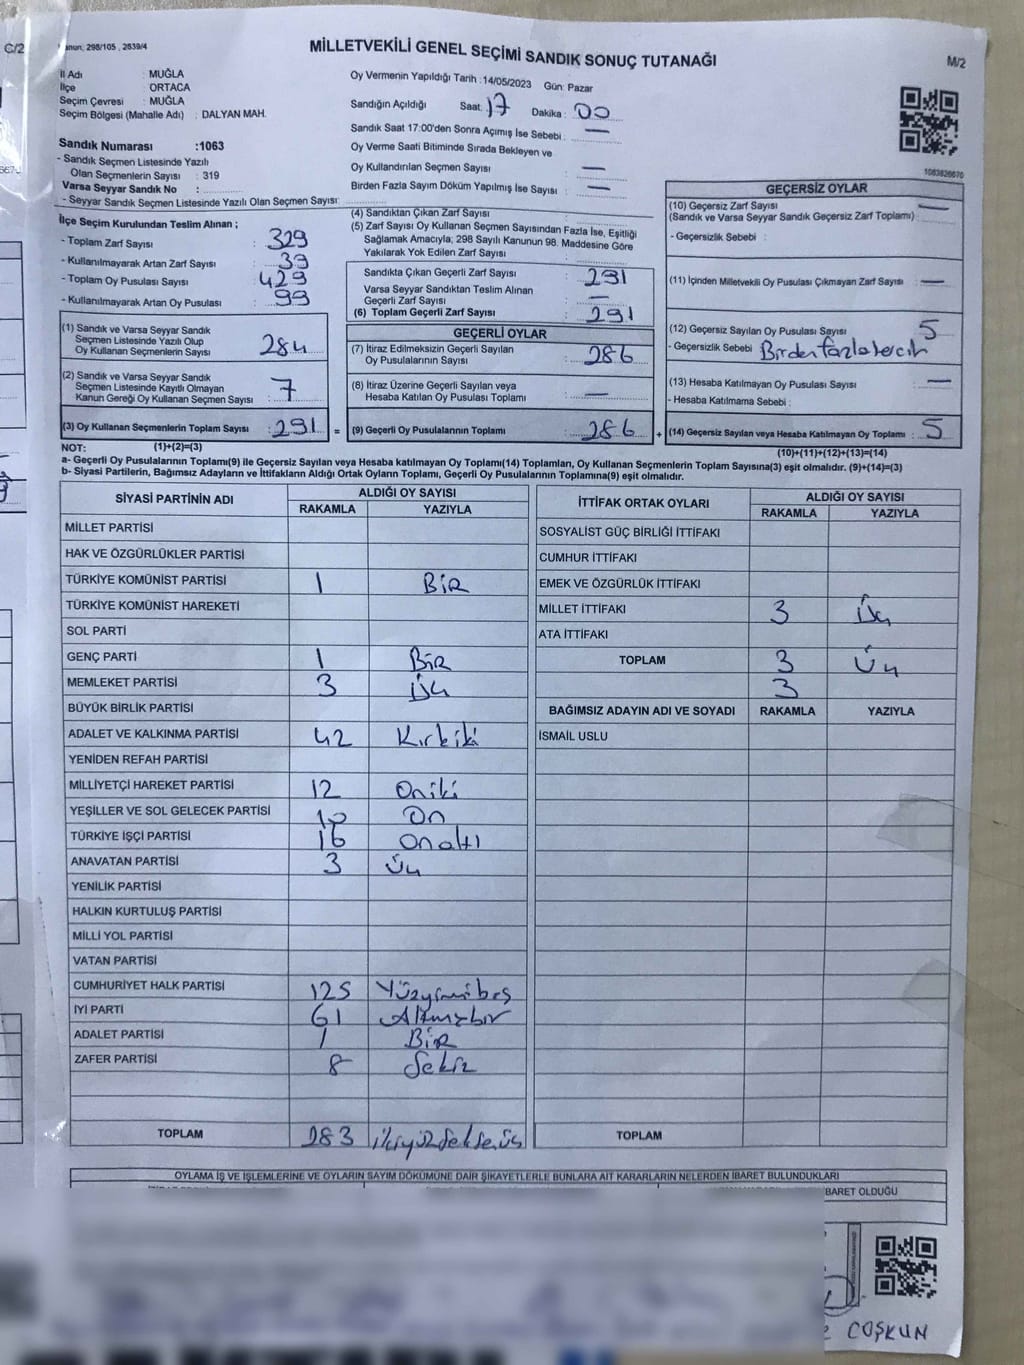 C/2
Kanun: 298/105 , 2839/4
MİLLETVEKİLİ GENEL SEÇİMİ SANDIK SONUÇ TUTANAĞI
M/2
İl Adı : MUĞLA
İlçe : ORTACA
Seçim Çevresi : MUĞLA
Seçim Bölgesi (Mahalle Adı) : DALYAN MAH.
Oy Vermenin Yapıldığı Tarih : 14/05/2023 Gün: Pazar
Sandığın Açıldığı Saat: 17 Dakika : 00
Sandık Saat 17:00'den Sonra Açımış İse Sebebi : —
Oy Verme Saati Bitiminde Sırada Bekleyen ve
Oy Kullandırılan Seçmen Sayısı : —
Birden Fazla Sayım Döküm Yapılmış İse Sayısı : —
1063828670
Sandık Numarası :1063
- Sandık Seçmen Listesinde Yazılı
Olan Seçmenlerin Sayısı : 319
Varsa Seyyar Sandık No :
- Seyyar Sandık Seçmen Listesinde Yazılı Olan Seçmen Sayısı:
İlçe Seçim Kurulundan Teslim Alınan ;
- Toplam Zarf Sayısı : 329
- Kullanılmayarak Artan Zarf Sayısı : 39
- Toplam Oy Pusulası Sayısı : 429
- Kullanılmayarak Artan Oy Pusulası : 99
(1) Sandık ve Varsa Seyyar Sandık
Seçmen Listesinde Yazılı Olup
Oy Kullanan Seçmenlerin Sayısı : 284
(2) Sandık ve Varsa Seyyar Sandık
Seçmen Listesinde Kayıtlı Olmayan
Kanun Gereği Oy Kullanan Seçmen Sayısı : 7
(3) Oy Kullanan Seçmenlerin Toplam Sayısı : 291 =
(4) Sandıktan Çıkan Zarf Sayısı :
(5) Zarf Sayısı Oy Kullanan Seçmen Sayısından Fazla İse, Eşitliği
Sağlamak Amacıyla, 298 Sayılı Kanunun 98. Maddesine Göre
Yakılarak Yok Edilen Zarf Sayısı :
Sandıkta Çıkan Geçerli Zarf Sayısı : 291
Varsa Seyyar Sandıktan Teslim Alınan
Geçerli Zarf Sayısı : —
(6) Toplam Geçerli Zarf Sayısı : 291
GEÇERLİ OYLAR
(7) İtiraz Edilmeksizin Geçerli Sayılan
Oy Pusulalarının Sayısı : 286
(8) İtiraz Üzerine Geçerli Sayılan veya
Hesaba Katılan Oy Pusulası Toplamı : —
(9) Geçerli Oy Pusulalarının Toplamı : 286 +
GEÇERSİZ OYLAR
(10) Geçersiz Zarf Sayısı : —
(Sandık ve Varsa Seyyar Sandık Geçersiz Zarf Toplamı)
- Geçersizlik Sebebi :
(11) İçinden Milletvekili Oy Pusulası Çıkmayan Zarf Sayısı : —
(12) Geçersiz Sayılan Oy Pusulası Sayısı : 5
- Geçersizlik Sebebi : Birden fazla tercih
(13) Hesaba Katılmayan Oy Pusulası Sayısı : —
- Hesaba Katılmama Sebebi :
(14) Geçersiz Sayılan veya Hesaba Katılmayan Oy Toplamı : 5
NOT: (1)+(2)=(3)
(10)+(11)+(12)+(13)=(14)
a- Geçerli Oy Pusulalarının Toplamı(9) ile Geçersiz Sayılan veya Hesaba katılmayan Oy Toplamı(14) Toplamları, Oy Kullanan Seçmenlerin Toplam Sayısına(3) eşit olmalıdır. (9)+(14)=(3)
b- Siyasi Partilerin, Bağımsız Adayların ve İttifakların Aldığı Ortak Oyların Toplamı, Geçerli Oy Pusulalarının Toplamına(9) eşit olmalıdır.
SİYASİ PARTİNİN ADI ALDIĞI OY SAYISI
RAKAMLA YAZIYLA
MİLLET PARTİSİ
HAK VE ÖZGÜRLÜKLER PARTİSİ
TÜRKİYE KOMÜNİST PARTİSİ 1 BİR
TÜRKİYE KOMÜNİST HAREKETİ
SOL PARTİ
GENÇ PARTİ 1 BİR
MEMLEKET PARTİSİ 3 Üç
BÜYÜK BİRLİK PARTİSİ
ADALET VE KALKINMA PARTİSİ 42 Kırkiki
YENİDEN REFAH PARTİSİ
MİLLİYETÇİ HAREKET PARTİSİ 12 Oniki
YEŞİLLER VE SOL GELECEK PARTİSİ 10 On
TÜRKİYE İŞÇİ PARTİSİ 16 Onaltı
ANAVATAN PARTİSİ 3 Üç
YENİLİK PARTİSİ
HALKIN KURTULUŞ PARTİSİ
MİLLİ YOL PARTİSİ
VATAN PARTİSİ
CUMHURİYET HALK PARTİSİ 125 Yüzyirmibeş
İYİ PARTİ 61 Altmışbir
ADALET PARTİSİ 1 BİR
ZAFER PARTİSİ 8 Sekiz
TOPLAM 283 ikiyüzseksenüç
İTTİFAK ORTAK OYLARI ALDIĞI OY SAYISI
RAKAMLA YAZIYLA
SOSYALİST GÜÇ BİRLİĞİ İTTİFAKI
CUMHUR İTTİFAKI
EMEK VE ÖZGÜRLÜK İTTİFAKI
MİLLET İTTİFAKI 3 Üç
ATA İTTİFAKI
TOPLAM 3 Üç
3
BAĞIMSIZ ADAYIN ADI VE SOYADI RAKAMLA YAZIYLA
İSMAİL USLU
TOPLAM
OYLAMA İŞ VE İŞLEMLERİNE VE OYLARIN SAYIM DÖKÜMÜNE DAİR ŞİKAYETLERLE BUNLARA AİT KARARLARIN NELERDEN İBARET BULUNDUKLARI
BARET OLDUĞU
COŞKUN